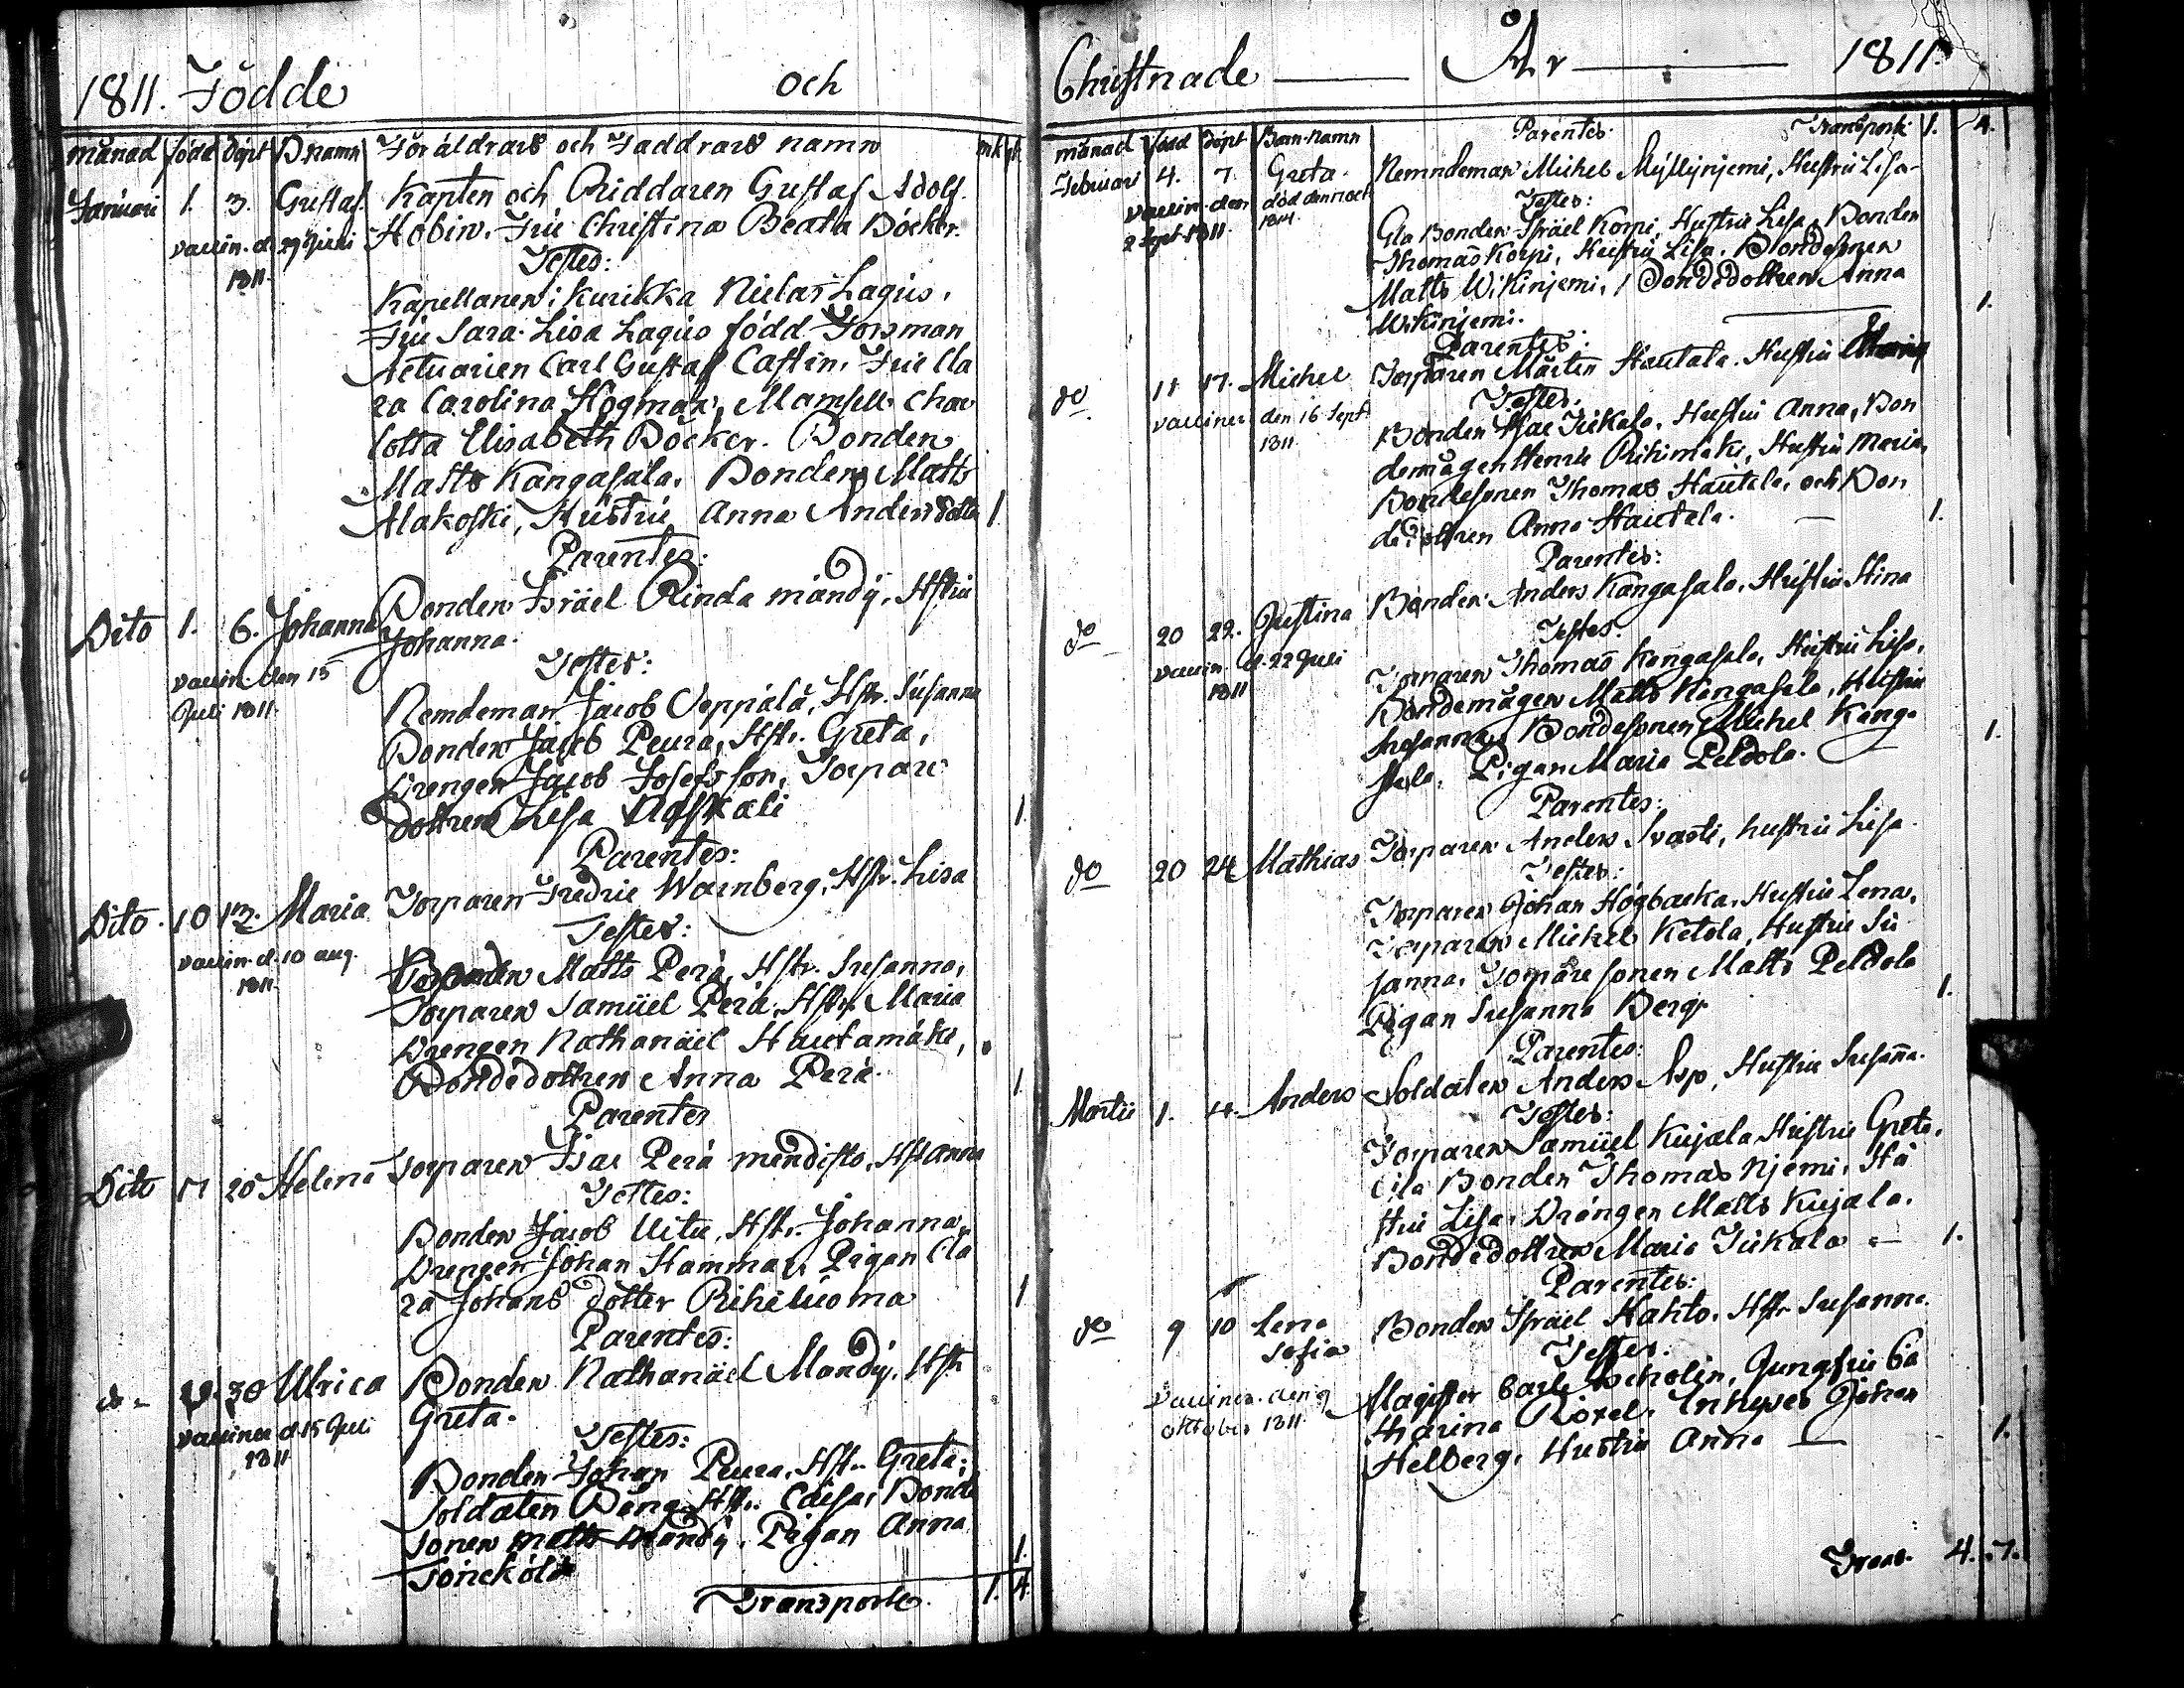 1811. Födde och
månad född döpt B.namn Föräldrars och Faddrars namn mk qk
Januari 1. 3. Gustaf Kapten och Riddaren Gustaf Adolf
vaccin. d. 29 Juni 1811. Hobin. Fru Christina Beata Böcker.
Testes:
Kapellanen i Kurikka Niclas Lagus,
Fru Sara Lisa Lagus född Forsman
Actuarien Carl Gustaf Castin, Fru Cla
ra Carolina Högman, Mamsell Char
lotta Elisabeth Böcker. Bonden
Matts Kangasala, Bonden Matts
Alakoski, Hustru Anna Andersdotter 1
Parentes:
Dito 1. 6. Johanna Bonden Israel Rinda mändy, Hstru
Johanna.
vaccin. den 15
Juli 1811.
Testes:
Nemdeman Jacob Seppälä, Hstr. Susanna
Bonden Jacob Peura, Hstr. Greta,
Drengen Jacob Josefsson, Torpare
dottren Lisa Naskali 1.
Parentes:
Dito. 10 13. Maria Torparen Fredric Warnberg, Hstr. Lisa
vaccin. d. 10 aug.
1811.
Testes:
Matts Perä, Hstr. Susanna,
Torparen Samuel Perä, Hstr. Maria
Drengen Nathanäel Hautamäki,
Bondedottren Anna Perä. 1
Parentes
Dito 17 20 Helena Torparen Isac Perä mendisto, Hst anna
Testes:
Bonden Jacob Uitu, Hstr. Johanna,
Drengen Johan Hammar, Pigan Cla
ra Johans dotter Rihiluoma 1
Parentes:
do 29. 30 Ulrica Bonden Nathanäel Mandy, Hstr
Greta.
vacciner d. 15 Juli
1811
Testes:
Bonden Johan Peura, Hstr. Greta,
Soldaten Häng Hstr. Caisa, Bonde
sonen Matts Mandy, Pigan Anna
1.
Transporte. 1. 4
Christnade År 1811.
månad född döpt Barn-namn Parentes: Transport. 1. 4.
Februari 4. 7. Greta. Nemndeman Michel Myllynjemi, Hustru Lisa
vaccin. den
2 Sept. 1811.
Testes:
Gla Bonden Israel Korpi, Hustru Lisa, Bonden
Thomas Korpi, Hustru Lisa, Bondesonen
Matts Wikinjemi, Bondedottren Anna
Wikinjemi. 1.
Parentes:
do 11 17. Michel Torparen Mårten Hautala. Hustru
vacciner den 16 Sept
1811.
Testes.
Bonden Isac Iukala, Hustru Anna, Bon
demågen Henric Rihimäki, Hustru Maria,
Bondesonen Thomas Hautala, och Bon
dedottren Anna Hautala. 1.
Parentes:
do 20 22. Justina Bonden Anders Kangasala, Hustru Stina
vaccin. d. 22 Juli
1811
Testes.
Torparen Thomas Kangasala, Hustru Lisa,
Bondemågen Matts Kangasala, Hustru
Susanna, Bondesonen Michel Kanga
sala, Pigan Maria Peldola. 1.
Parentes:
do 20 24 Mathias Torparen Anders Svasti, hustru Lisa.
Testes:
Torparen Johan Högbacka, Hustru Lena,
Torparen Michel Ketola, Hustru Su
sanna, Torparesonen Matts Peldola
Pigan Susanna Berg. 1.
Parentes:
Martii 1. 4. Anders Soldaten Anders Asp, Hustru Susanna.
Testes:
Torparen Samuel Kujala Hustru Greta,
Gla Bonden Thomas Njemi, Hu
stru Lisa, Drängen Matts Kujala.
Bondedottren Maria Iukala 1.
Parentes:
do 9 10 Lena
Sofia Bonden Israel Kahto, Hstr Susanna.
Testes.
vaccinea. den 9
oktober 1811.
Magister Carl Ascholin, Jungfru Ca
tharina Roxel, Inhyses Johan
Helberg, Hustru Anna 1.
Trans. 4. 7.